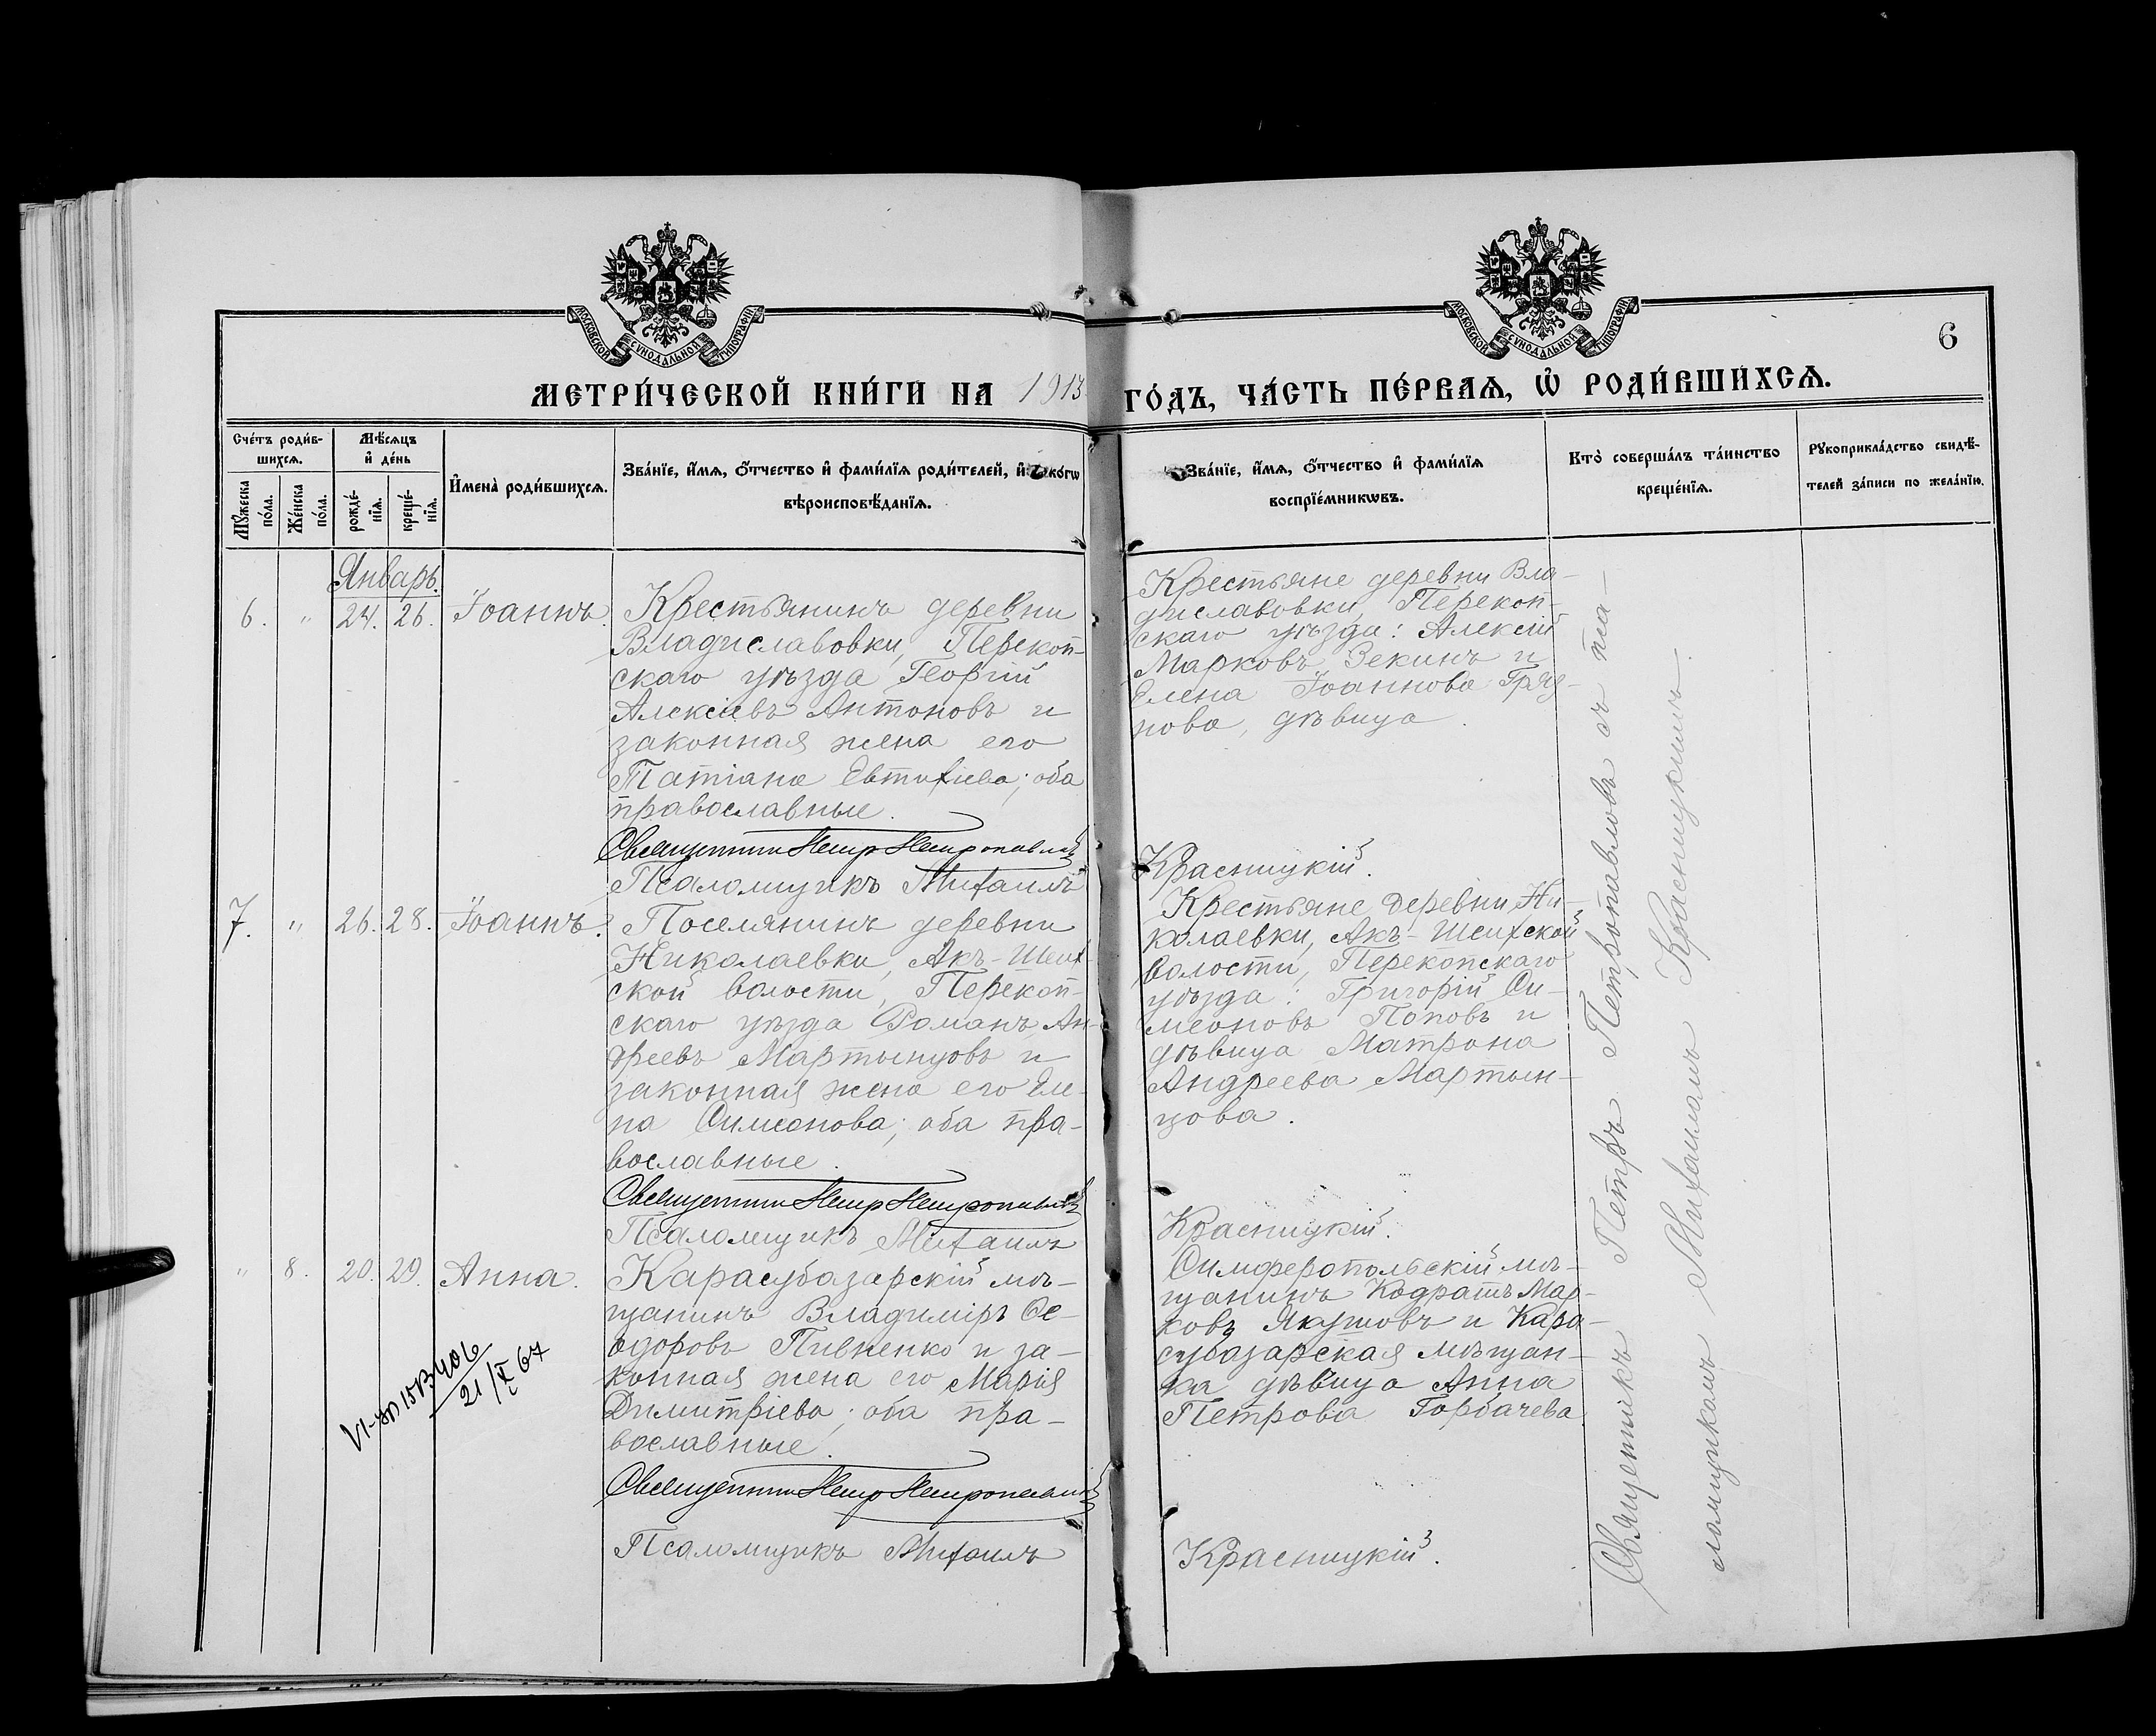 МОСКОВСКОЙ СѴНОДАЛЬНОЙ ТИПОГРАФІИ
МОСКОВСКОЙ СѴНОДАЛЬНОЙ ТИПОГРАФІИ
6
МЕТРИ́ЧЕСКОЙ КНИ́ГИ НА 1913 ГО́ДЪ, ЧА́СТЬ ПЕ́РВАѦ, Ѡ҆ РОДИ́ВШИХСѦ.
Сче́тъ роди́в-
шихсѧ.
Мѣ́сѧцъ
и҆ де́нь
Мꙋ́жеска
по́ла.
Же́нска
по́ла.
рожде́-
нїѧ.
креще́-
нїѧ.
И҆мена̀ роди́вшихсѧ.
Зва́нїе, и҆́мѧ, ѻ҆́тчество и҆ фами́лїѧ роди́телей, и҆ како́гѡ
вѣроисповѣ́данїѧ.
Зва́нїе, и҆́мѧ, ѻ҆́тчество и҆ фами́лїѧ
воспрїе́мникѡвъ.
Кто̀ соверша́лъ та́инство
креще́нїѧ.
Рꙋкоприкла́дство свидѣ́-
телей за́писи по жела́нїю.
Январь.
6. " 24. 26. Іоаннъ.
Крестьянинъ деревни
Владиславовки, Перекоп-
скаго уѣзда Георгій
Алексіевъ Антоновъ и
законная жена его
Татіана Евтихіева; оба
православные.
Священникъ Петръ Петропавловъ
Псаломщикъ Михаилъ
Крестьяне деревни Вла-
диславовки, Перекоп-
скаго уѣзда: Алексій
Марковъ Зекинъ и
Елена Іоаннова
нова, дѣвица.
Красницкій.
7. " 26. 28. Іоаннъ.
Поселянинъ деревни
Николаевки, Акъ-Шеих-
ской волости, Перекоп-
скаго уѣзда Романъ Ан-
дреевъ Мартынцовъ и
законная жена его Еле-
на Симеонова; оба пра-
вославные.
Священникъ Петръ Петропавловъ
Псаломщикъ Михаилъ
Крестьяне деревни Ни-
колаевки, Акъ-Шеихской
волости, Перекопскаго
уѣзда: Григорій Си-
меоновъ Поповъ и
дѣвица Матрона
Андреева Мартын-
цова.
Красницкій.
" 8. 20. 29. Анна.
Карасубазарскій мѣ-
щанинъ Владиміръ Ѳе-
одоровъ Пивненко и за-
конная жена его Марія
Димитріева; оба пра-
вославные.
Священникъ Петръ Петропавловъ
Псаломщикъ Михаилъ
Симферопольскій мѣ-
щанинъ Кодратъ Мар-
ковъ Якушовъ и Кара-
субазарская мѣщан-
ка дѣвица Анна
Петрова Горбачева
Красницкій.
21/X 67
Священникъ Петръ Петропавловъ съ пса-
ломщикомъ Михаиломъ Красницкимъ.